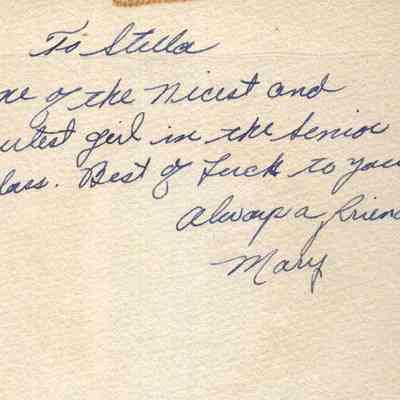 To Stella
ne of the Nicest and
utest girl in the Senior
lass. Best of Luck to you
Always a friend
Mary